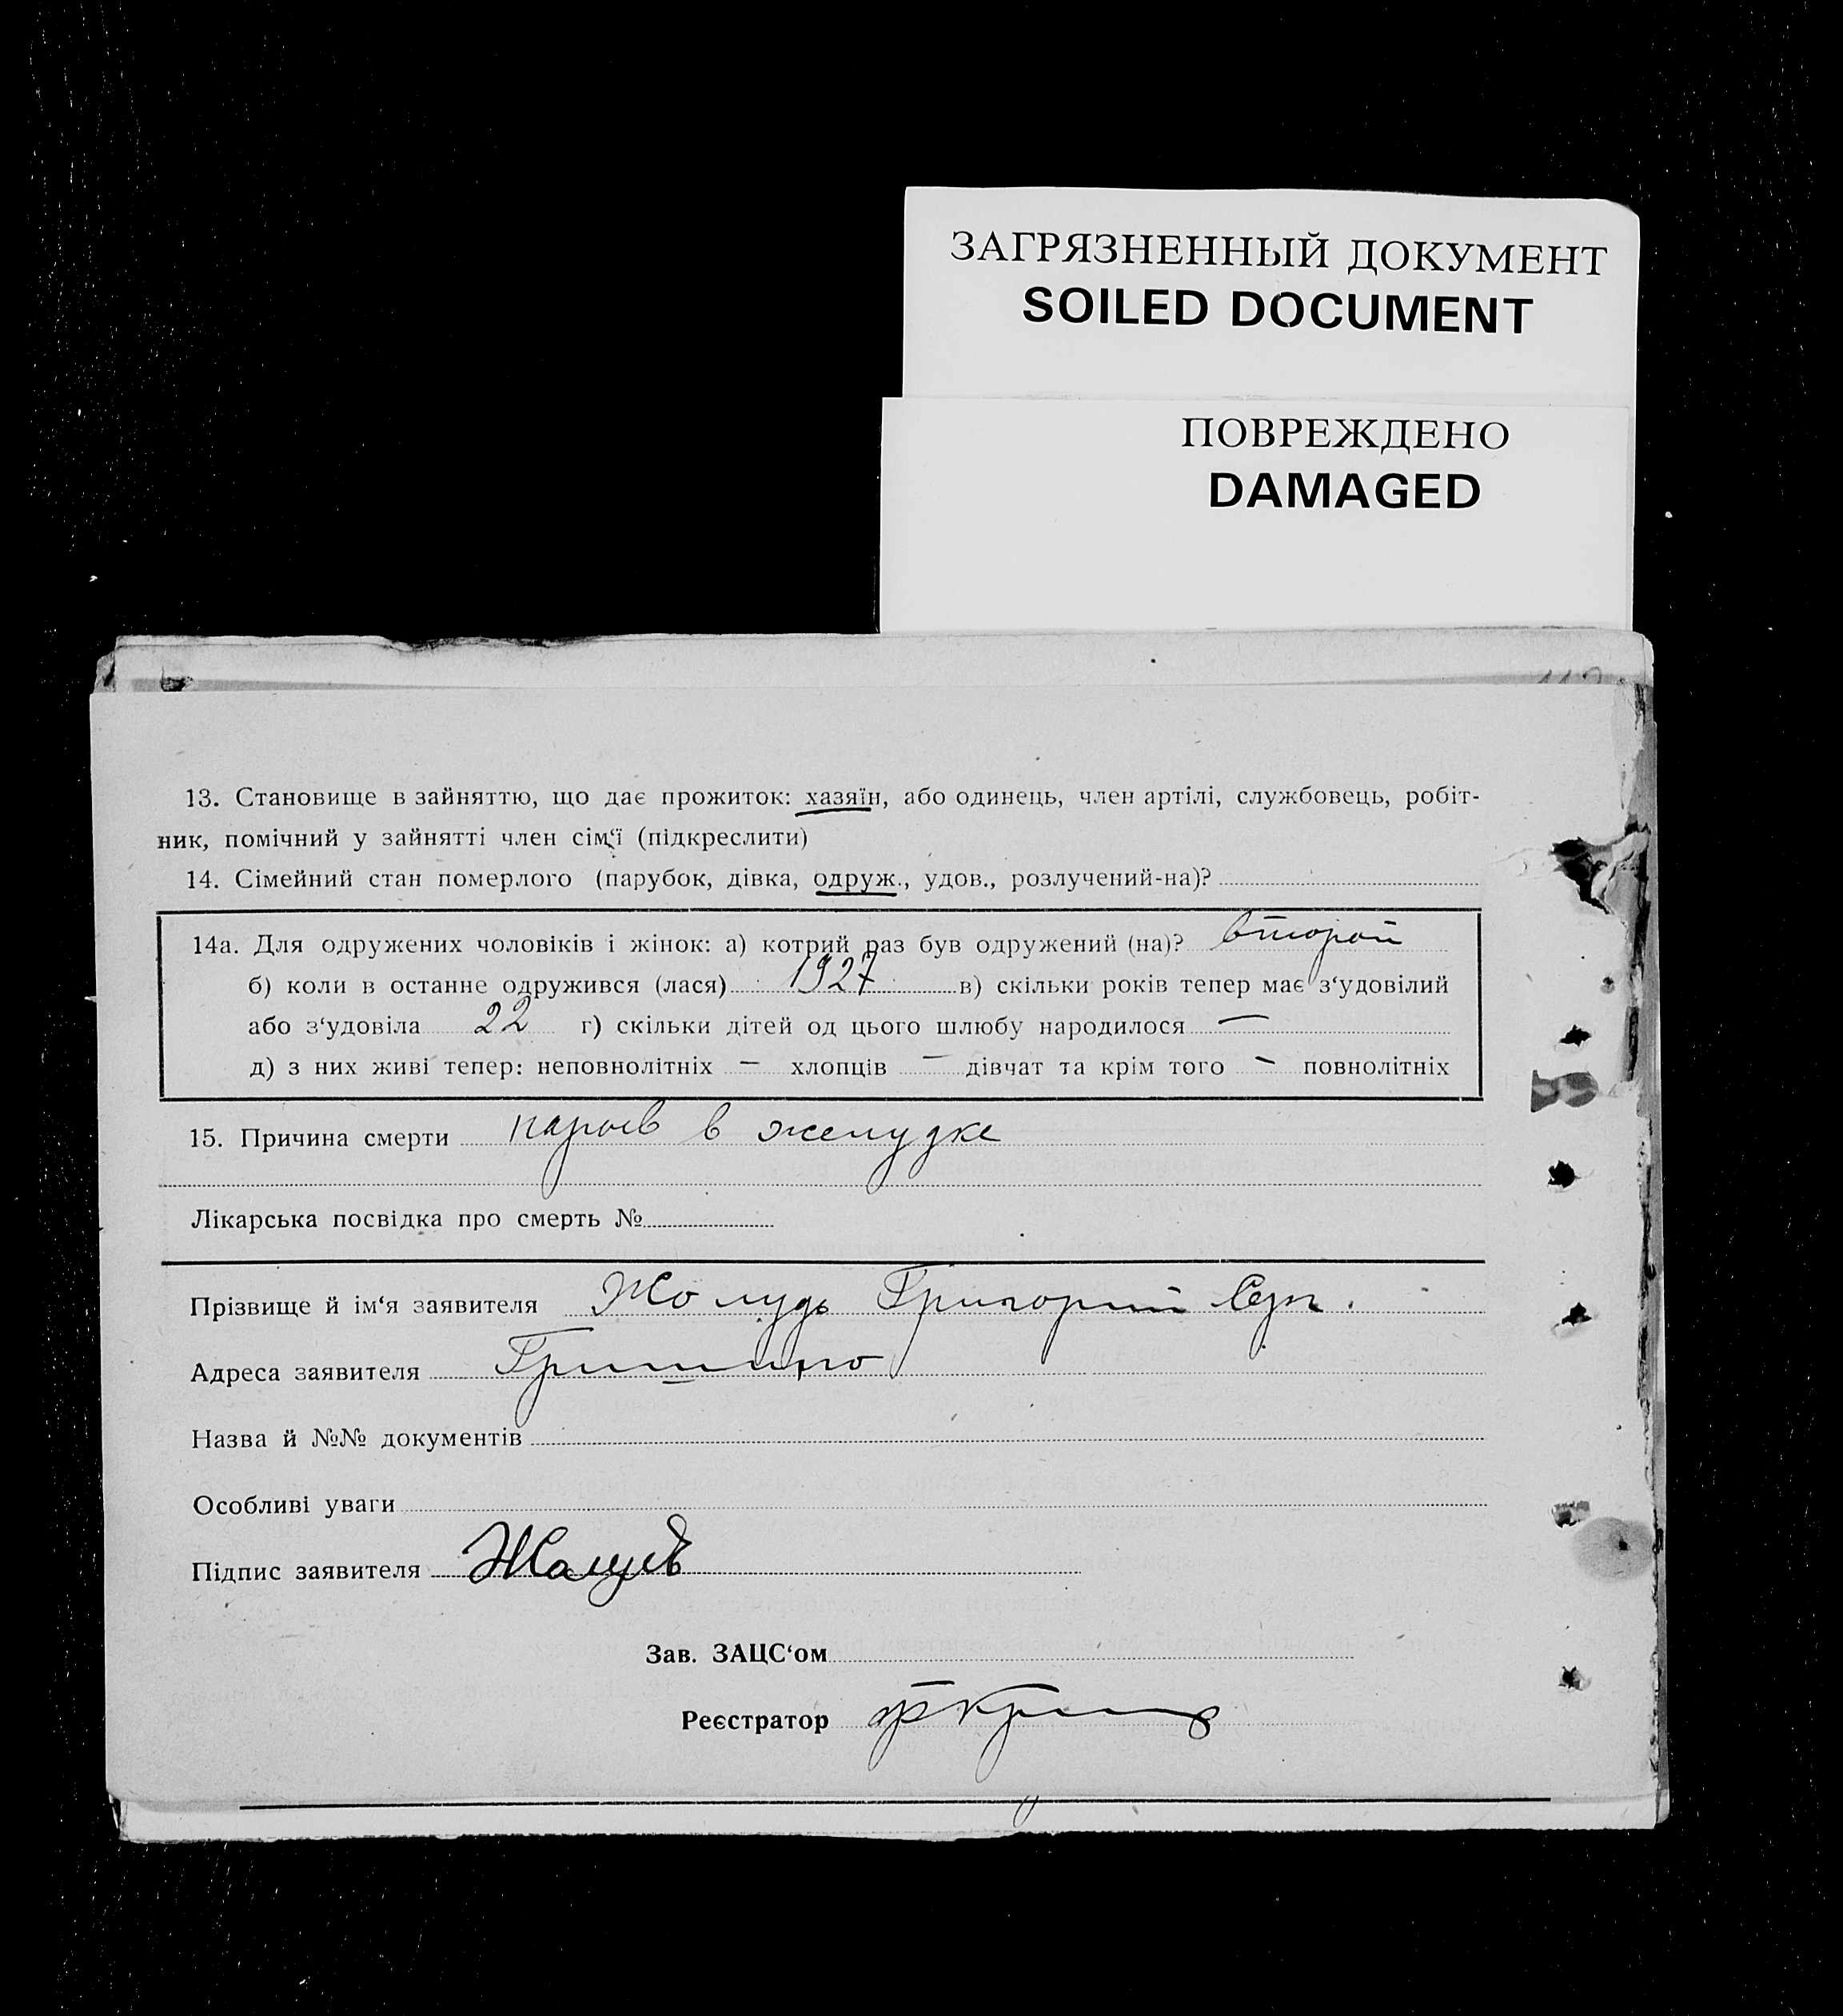 ЗАГРЯЗНЕННЫЙ ДОКУМЕНТ
SOILED DOCUMENT
ПОВРЕЖДЕНО
DAMAGED
13. Становище в зайняттю, що дає прожиток: хазяїн, або одинець, член артілі, службовець, робіт-
ник, помічний у зайнятті член сім‘ї (підкреслити)
14. Сімейний стан померлого (парубок, дівка, одруж., удов., розлучений-на)?
14а. Для одружених чоловіків і жінок: а) котрий раз був одружений (на)? второй
б) коли в останне одружився (лася) 1927 в) скільки років тепер має з‘удовілий
або з‘удовіла 22 г) скільки дітей од цього шлюбу народилося —
д) з них живі тепер: неповнолітніх — хлопців — дівчат та крім того - повнолітніх
15. Причина смерти нарыв в желудке
Лікарська посвідка про смерть №
Прізвище й ім‘я заявителя Жолудь Григорий
Адреса заявителя Гришино
Назва й №№ документів
Особливі уваги
Підпис заявителя
Зав. ЗАЦС‘ом
Реєстратор